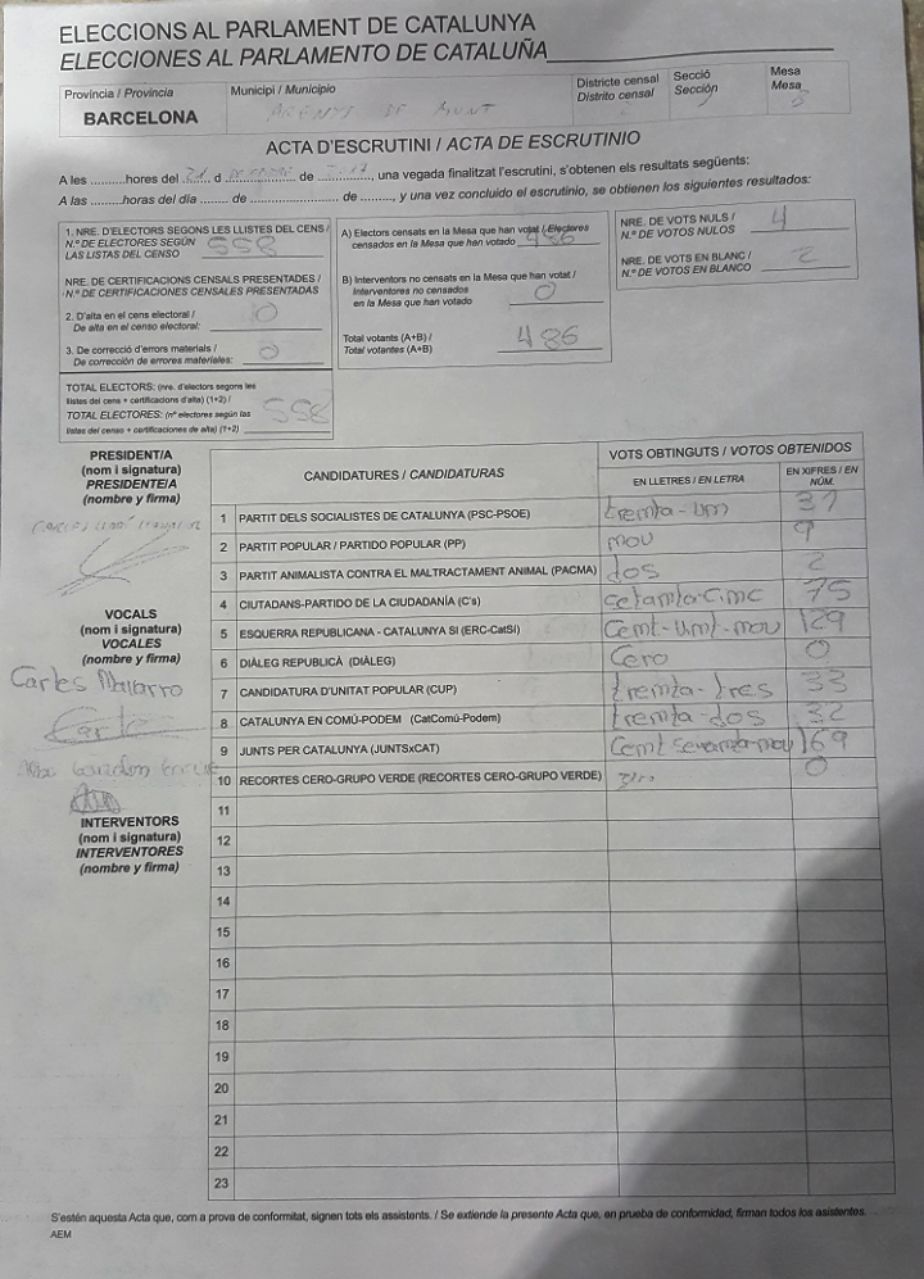 ELECCIONS AL PARLAMENT DE CATALUNYA
ELECCIONES AL PARLAMENTO DE CATALUÑA
Província / Provincia
BARCELONA
Municipi / Municipio
ARENYS DE MUNT
Districte censal
Distrito censal
Secció
Sección
Mesa
Mesa
ACTA D'ESCRUTINI / ACTA DE ESCRUTINIO
A les ..........hores del 21 d ................. de ........., una vegada finalitzat l'escrutini, s'obtenen els resultats següents:
A las ..........horas del día ....... de ....................... de ........., y una vez concluido el escrutinio, se obtienen los siguientes resultados:
1. NRE. D'ELECTORS SEGONS LES LLISTES DEL CENS /
N.º DE ELECTORES SEGÚN
LAS LISTAS DEL CENSO 558
NRE. DE CERTIFICACIONS CENSALS PRESENTADES /
N.º DE CERTIFICACIONES CENSALES PRESENTADAS
2. D'alta en el cens electoral /
De alta en el censo electoral: 0
3. De correcció d'errors materials /
De corrección de errores materiales: 0
TOTAL ELECTORS: (nre. d'electors segons les
llistes del cens + certificacions d'alta) (1+2) /
TOTAL ELECTORES: (nº electores según las
listas del censo + certificaciones de alta) (1+2) 558
A) Electors censats en la Mesa que han votat / Electores
censados en la Mesa que han votado 486
B) Interventors no censats en la Mesa que han votat /
Interventores no censados
en la Mesa que han votado 0
Total votants (A+B) /
Total votantes (A+B) 486
NRE. DE VOTS NULS /
N.º DE VOTOS NULOS 4
NRE. DE VOTS EN BLANC /
N.º DE VOTOS EN BLANCO 2
PRESIDENT/A
(nom i signatura)
PRESIDENTE/A
(nombre y firma)
VOCALS
(nom i signatura)
VOCALES
(nombre y firma)
Carles Navarro
INTERVENTORS
(nom i signatura)
INTERVENTORES
(nombre y firma)
CANDIDATURES / CANDIDATURAS
VOTS OBTINGUTS / VOTOS OBTENIDOS
EN LLETRES / EN LETRA
EN XIFRES / EN NÚM.
1 PARTIT DELS SOCIALISTES DE CATALUNYA (PSC-PSOE) trenta-un 31
2 PARTIT POPULAR / PARTIDO POPULAR (PP) nou 9
3 PARTIT ANIMALISTA CONTRA EL MALTRACTAMENT ANIMAL (PACMA) dos 2
4 CIUTADANS-PARTIDO DE LA CIUDADANÍA (C's) cetanta-cinc 75
5 ESQUERRA REPUBLICANA - CATALUNYA SI (ERC-CatSí) Cent-vint-nou 129
6 DIÀLEG REPUBLICÀ (DIÀLEG) Cero 0
7 CANDIDATURA D'UNITAT POPULAR (CUP) trenta-tres 33
8 CATALUNYA EN COMÚ-PODEM (CatComú-Podem) trenta-dos 32
9 JUNTS PER CATALUNYA (JUNTSxCAT) Cent 169
10 RECORTES CERO-GRUPO VERDE (RECORTES CERO-GRUPO VERDE) 0
11
12
13
14
15
16
17
18
19
20
21
22
23
S'estén aquesta Acta que, com a prova de conformitat, signen tots els assistents. / Se extiende la presente Acta que, en prueba de conformidad, firman todos los asistentes.
AEM